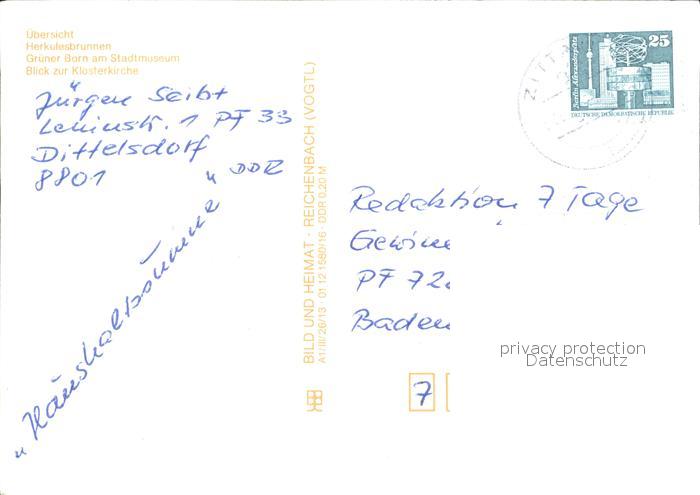 Übersicht
Herkulesbrunnen
Grüner Born am Stadtmuseum
Blick zur Klosterkirche
Jürgen Seibt
Leninstr. 1 PF 33
Dittelsdorf
8801 DDR
BILD UND HEIMAT · REICHENBACH (VOGTL)
A1/III/26/13 · 01 12 1580/16 · DDR 0,20 M
25
Berlin, Alexanderplatz
DEUTSCHE DEMOKRATISCHE REPUBLIK
ZITTA
Redaktion 7 Tage
PF 72
Baden
7
privacy protection
Datenschutz